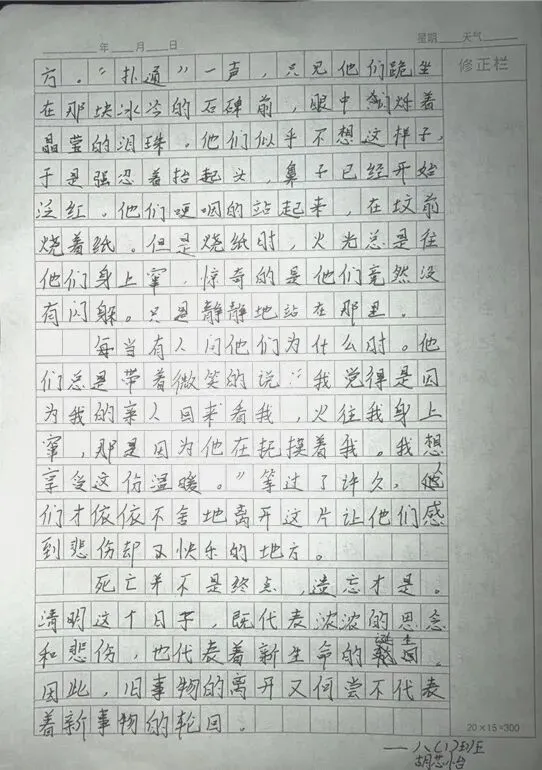 年 月 日 星期 天气
修正栏
方。“扑通”一声，只见他们跪坐
在那块冰冷的石碑前，眼中闪烁着
晶莹的泪珠。他们似乎不想这样子，
于是强忍着抬起头，鼻子已经开始
泛红。他们哽咽的站起来，在坟前
烧着纸。但是烧纸时，火光总是往
他们身上窜，惊奇的是他们竟然没
有闪躲。只是静静地站在那里。
每当有人问他们为什么时。他
们总是带着微笑的说：“我觉得是因
为我的亲人回来看我，火往我身上
窜，那是因为他在抚摸着我。我想
享受这份温暖。”等过了许久，他
们才依依不舍地离开这片让他们感
到悲伤却又快乐的地方。
死亡并不是终点，遗忘才是。
清明这个日子，既代表浓浓的思念
和悲伤，也代表着新生命的诞生。
因此，旧事物的离开又何尝不代表
着新事物的轮回。
20×15=300
——八(1)班
胡芯怡